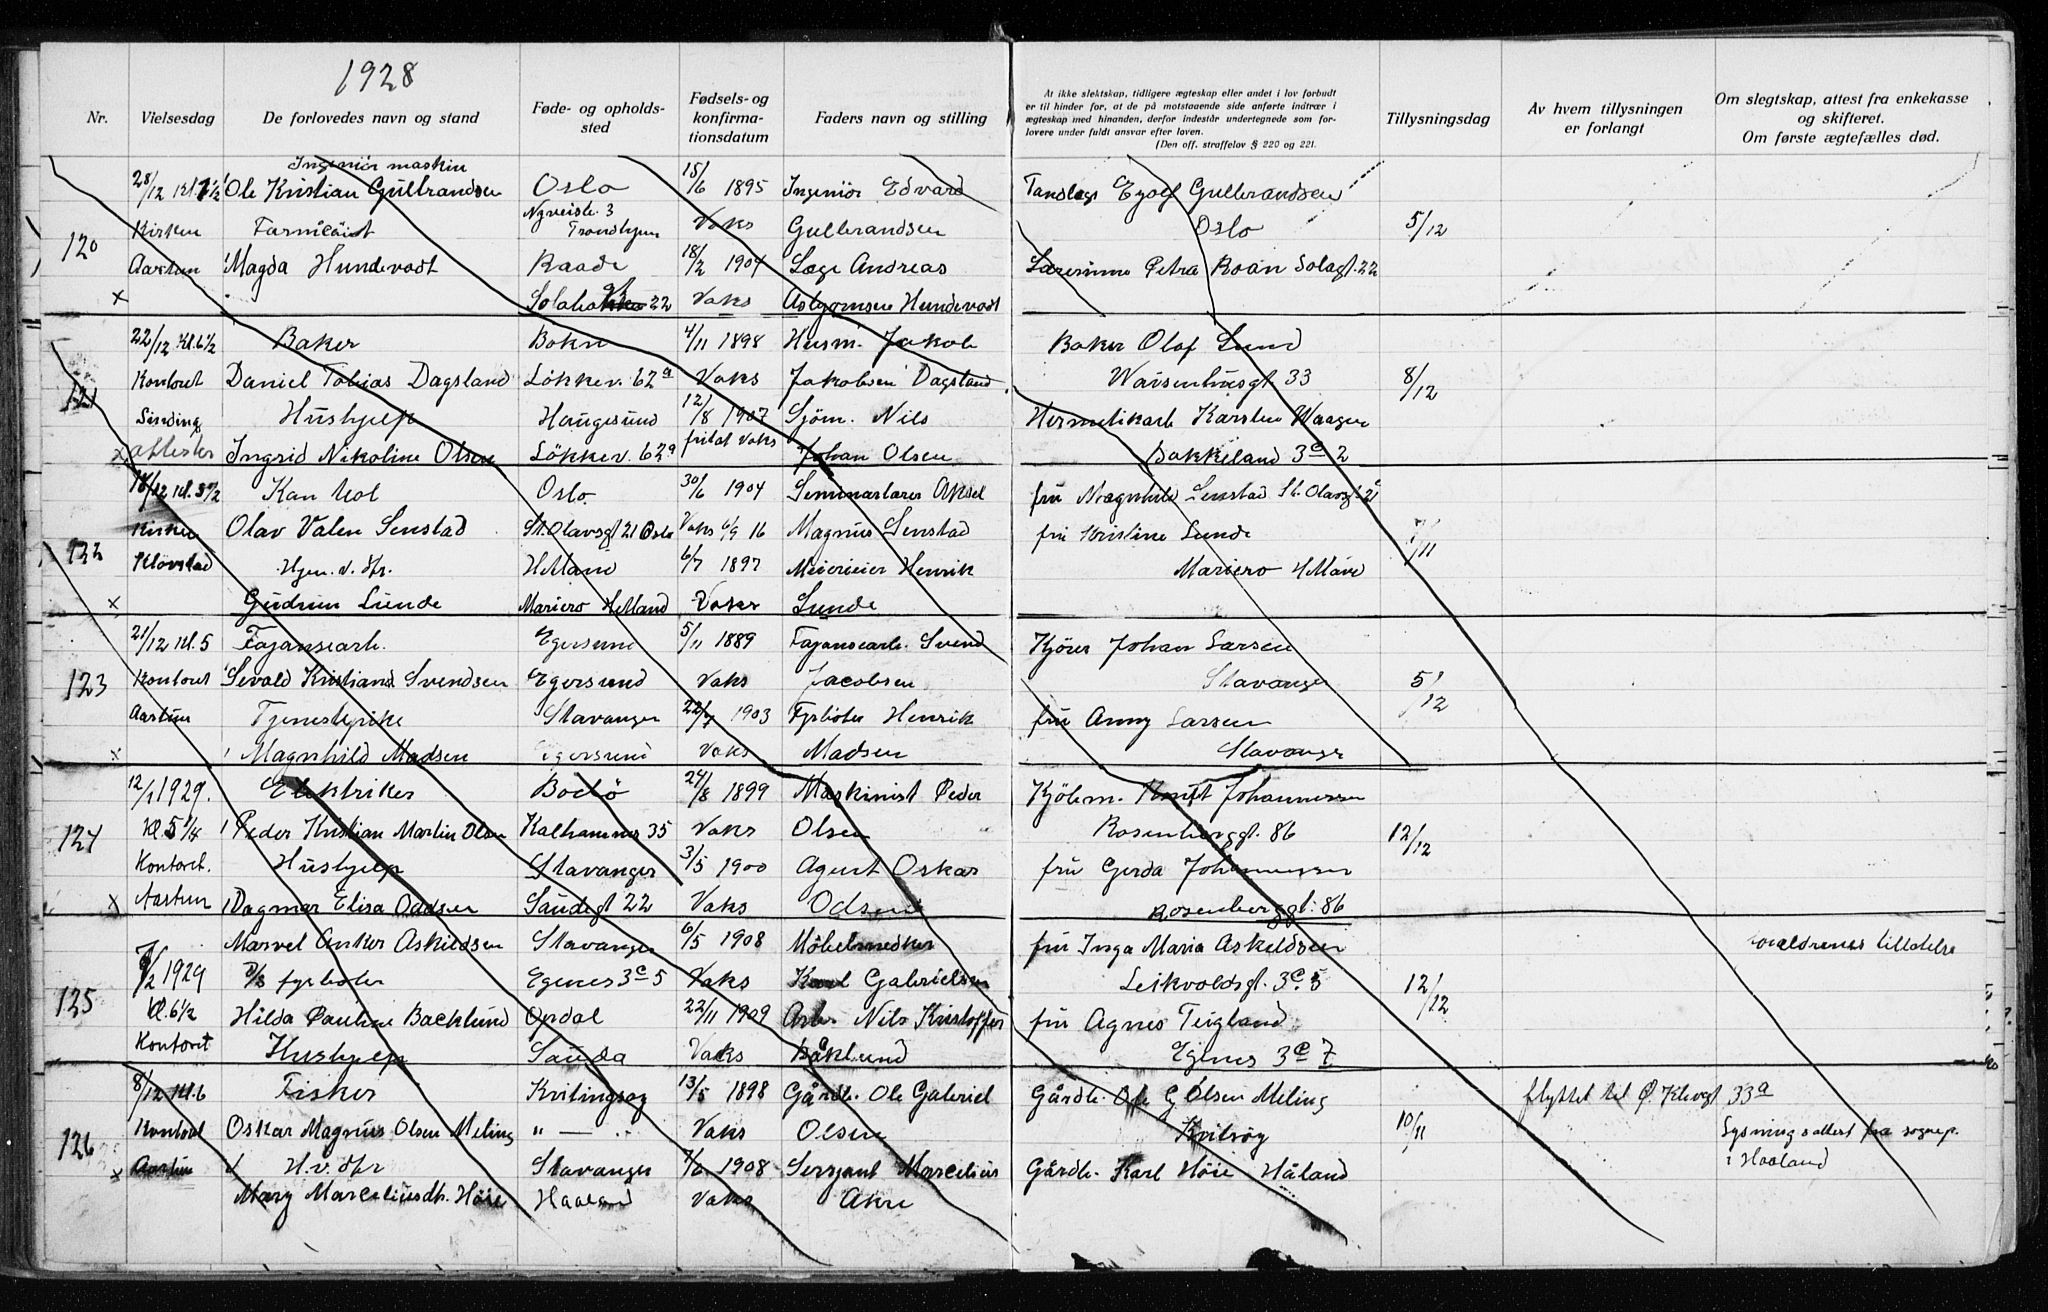 1928
Nr.
Vielsesdag
De forlovedes navn og stand
Føde- og opholds-
sted
Fødsels- og
konfirma-
tionsdatum
Faders navn og stilling
At ikke slektskap, tidligere ægteskap eller andet i lov forbudt
er til hinder for, at de på motstaaende side anførte indtrær i
ægteskap med hinanden, derfor indestår undertegnede som for-
lovere under fuldt ansvar efter loven.
(Den off. straffelov § 220 og 221.
Tillysningsdag
Av hvem tillysningen
er forlangt
Om slegtskap, attest fra enkekasse
og skifteret.
Om første ægtefælles død.
Ingeniör maskin
28/12 Kl. 1 1/2 Ole Kristian Gulbrandsen Oslo 15/6 1895 Ingeniör Edvard Tandlæge Egolf Gulbrandsen
120 Kirken Farmaceut Nyveisb. 3 Trondhjem Vaks Gulbrandsen Oslo 5/12
Aastun Magda Hundevadt Raade 18/2 1904 Læge Andreas Lærerinne Petra Roan Solagt. 22
x Sola 22 Vaks Asbjørnsen Hundevadt
22/12 Kl. 6 1/2 Baker Bokn 4/11 1898 Husm. Jakob Baker Olaf Lund
121 Kontoret Daniel Tobias Dagsland Lökkev. 62a Vaks Jakobsen Dagsland Waisenhusgt 33 8/12
Sinding Hushjelp Haugesund 12/8 1907 Sjöm. Nils Hermetikarb Karsten Waagen
x attester Ingrid Nikoline Olsen Lökkev. 62a fritat Vaks Johan Olsen Bakkeland 3e 2
18/12 Kl. 3 1/2 Kan. Kol Oslo 30/6 1904 Seminarlærer Aksel fru Ragnhild Senstad St. Olavsgt. 21
122 Kirken Olav Valen Senstad St. Olavsgt 21 Oslo Vaks 6/9 16 Magnus Senstad fru Kristine Lunde 7/11
Klövstad Hjem. v. dfr. Hetland 6/7 1897 Meierieier Henrik Mariero Hetland
x Gudrun Lunde Mariero Hetland Vaks Lunde
21/12 Kl. 5 Fajansearb. Egersund 5/11 1889 Fajansearb. Svend Kjörer Johan Larsen
123 Kontoret Sevald Kristian Svendsen Egersund Vaks Jacobsen Stavanger 5/12
Aastun Tjenestepike Stavanger 22/7 1903 Fyrböter Henrik fru Anny Larsen
x Magnhild Madsen Egersund Vaks Madsen Stavanger
12/1 1929. Elektriker Bodö 24/8 1899 Maskinist Peder Kjöbm. Knut Johannessen
124 Kl. 5 1/4 Peder Kristian Martin Olsen Kalhammer 35 Vaks Olsen Rosenberggt. 86 12/12
Kontoret. Hushjelp Stavanger 3/5 1900 Agent Oskar fru Gerda Johannessen
x Aastun Dagmar Elisa Oddsen Saudegt 22 Vaks Odsen Rosenberggt: 86
Marvel Anker Askildsen Stavanger 6/5 1908 Möbelsnedker fru Inga Maria Askeldsen forældrenes tilladelse
125 9/2 1929 D/S fyrböter Egenes 3e 5 Vaks Karl Gabrielsen Leikvoldsgt. 3e. 5 12/12
Kl. 6 1/2 Hilda Pauline Backlund Opdal 22/11 1909 Arb. Nils Kristoffer fru Agnes Teigland
Kontoret Hushjelp Sauda Vaks Båklund Egenes 3e 7
8/12 Kl. 6 Fisker Kvitingsøy 13/5 1898 Gårdb. Ole Gabriel Gårdb. Ole G Olsen Meling flyttet til Ø. Klevgt 33a
126 Kontoret Oskar Magnus Olsen Meling " — " Vaks Olsen Kvitsöy 10/11 Lysningsattest fra sognep.
x Aastun H. v. dfr Stavanger 7/6 1908 Sersjant Marcelius Gårdb. Karl Höie Håland i Haaland
Mary Marceliusdtr. Höie Haaland Vaks Akre